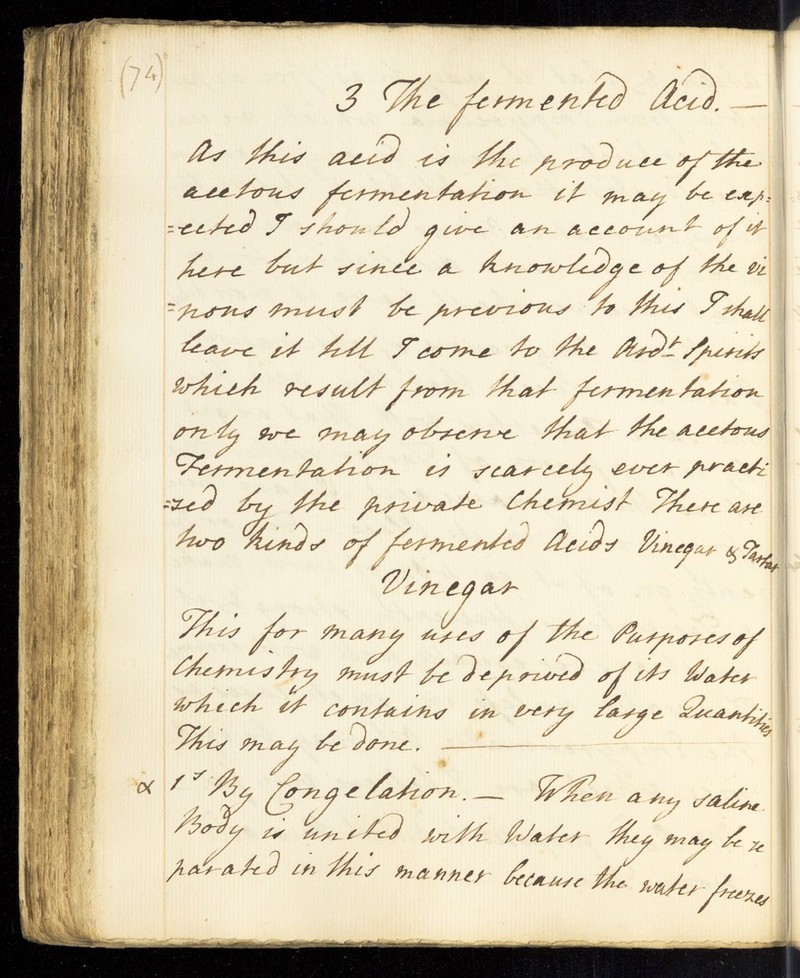 (74)
3 The fermented Acid. —
As this acid is the produce of the
acetous fermentation it may be exp=
=ected I should give an account of it
here but since a knowledge of the vi
=nous must be previous to this I shall
leave it till I come to the Ardt Spirits
which result from that fermentation
only we may observe that the acetous
Fermentation is scarcely ever practi
=sed by the private Chemist There are
two kinds of fermented Acids Vinegar & Tartar
Vinegar
This for many uses of the Purposes of
Chemistry must be deprived of its Water
which it contains in very large Quantities
This may be done. —
α 1st By Congelation. — When any saline
Body is united with Water they may be se
parated in this manner because the water freezes